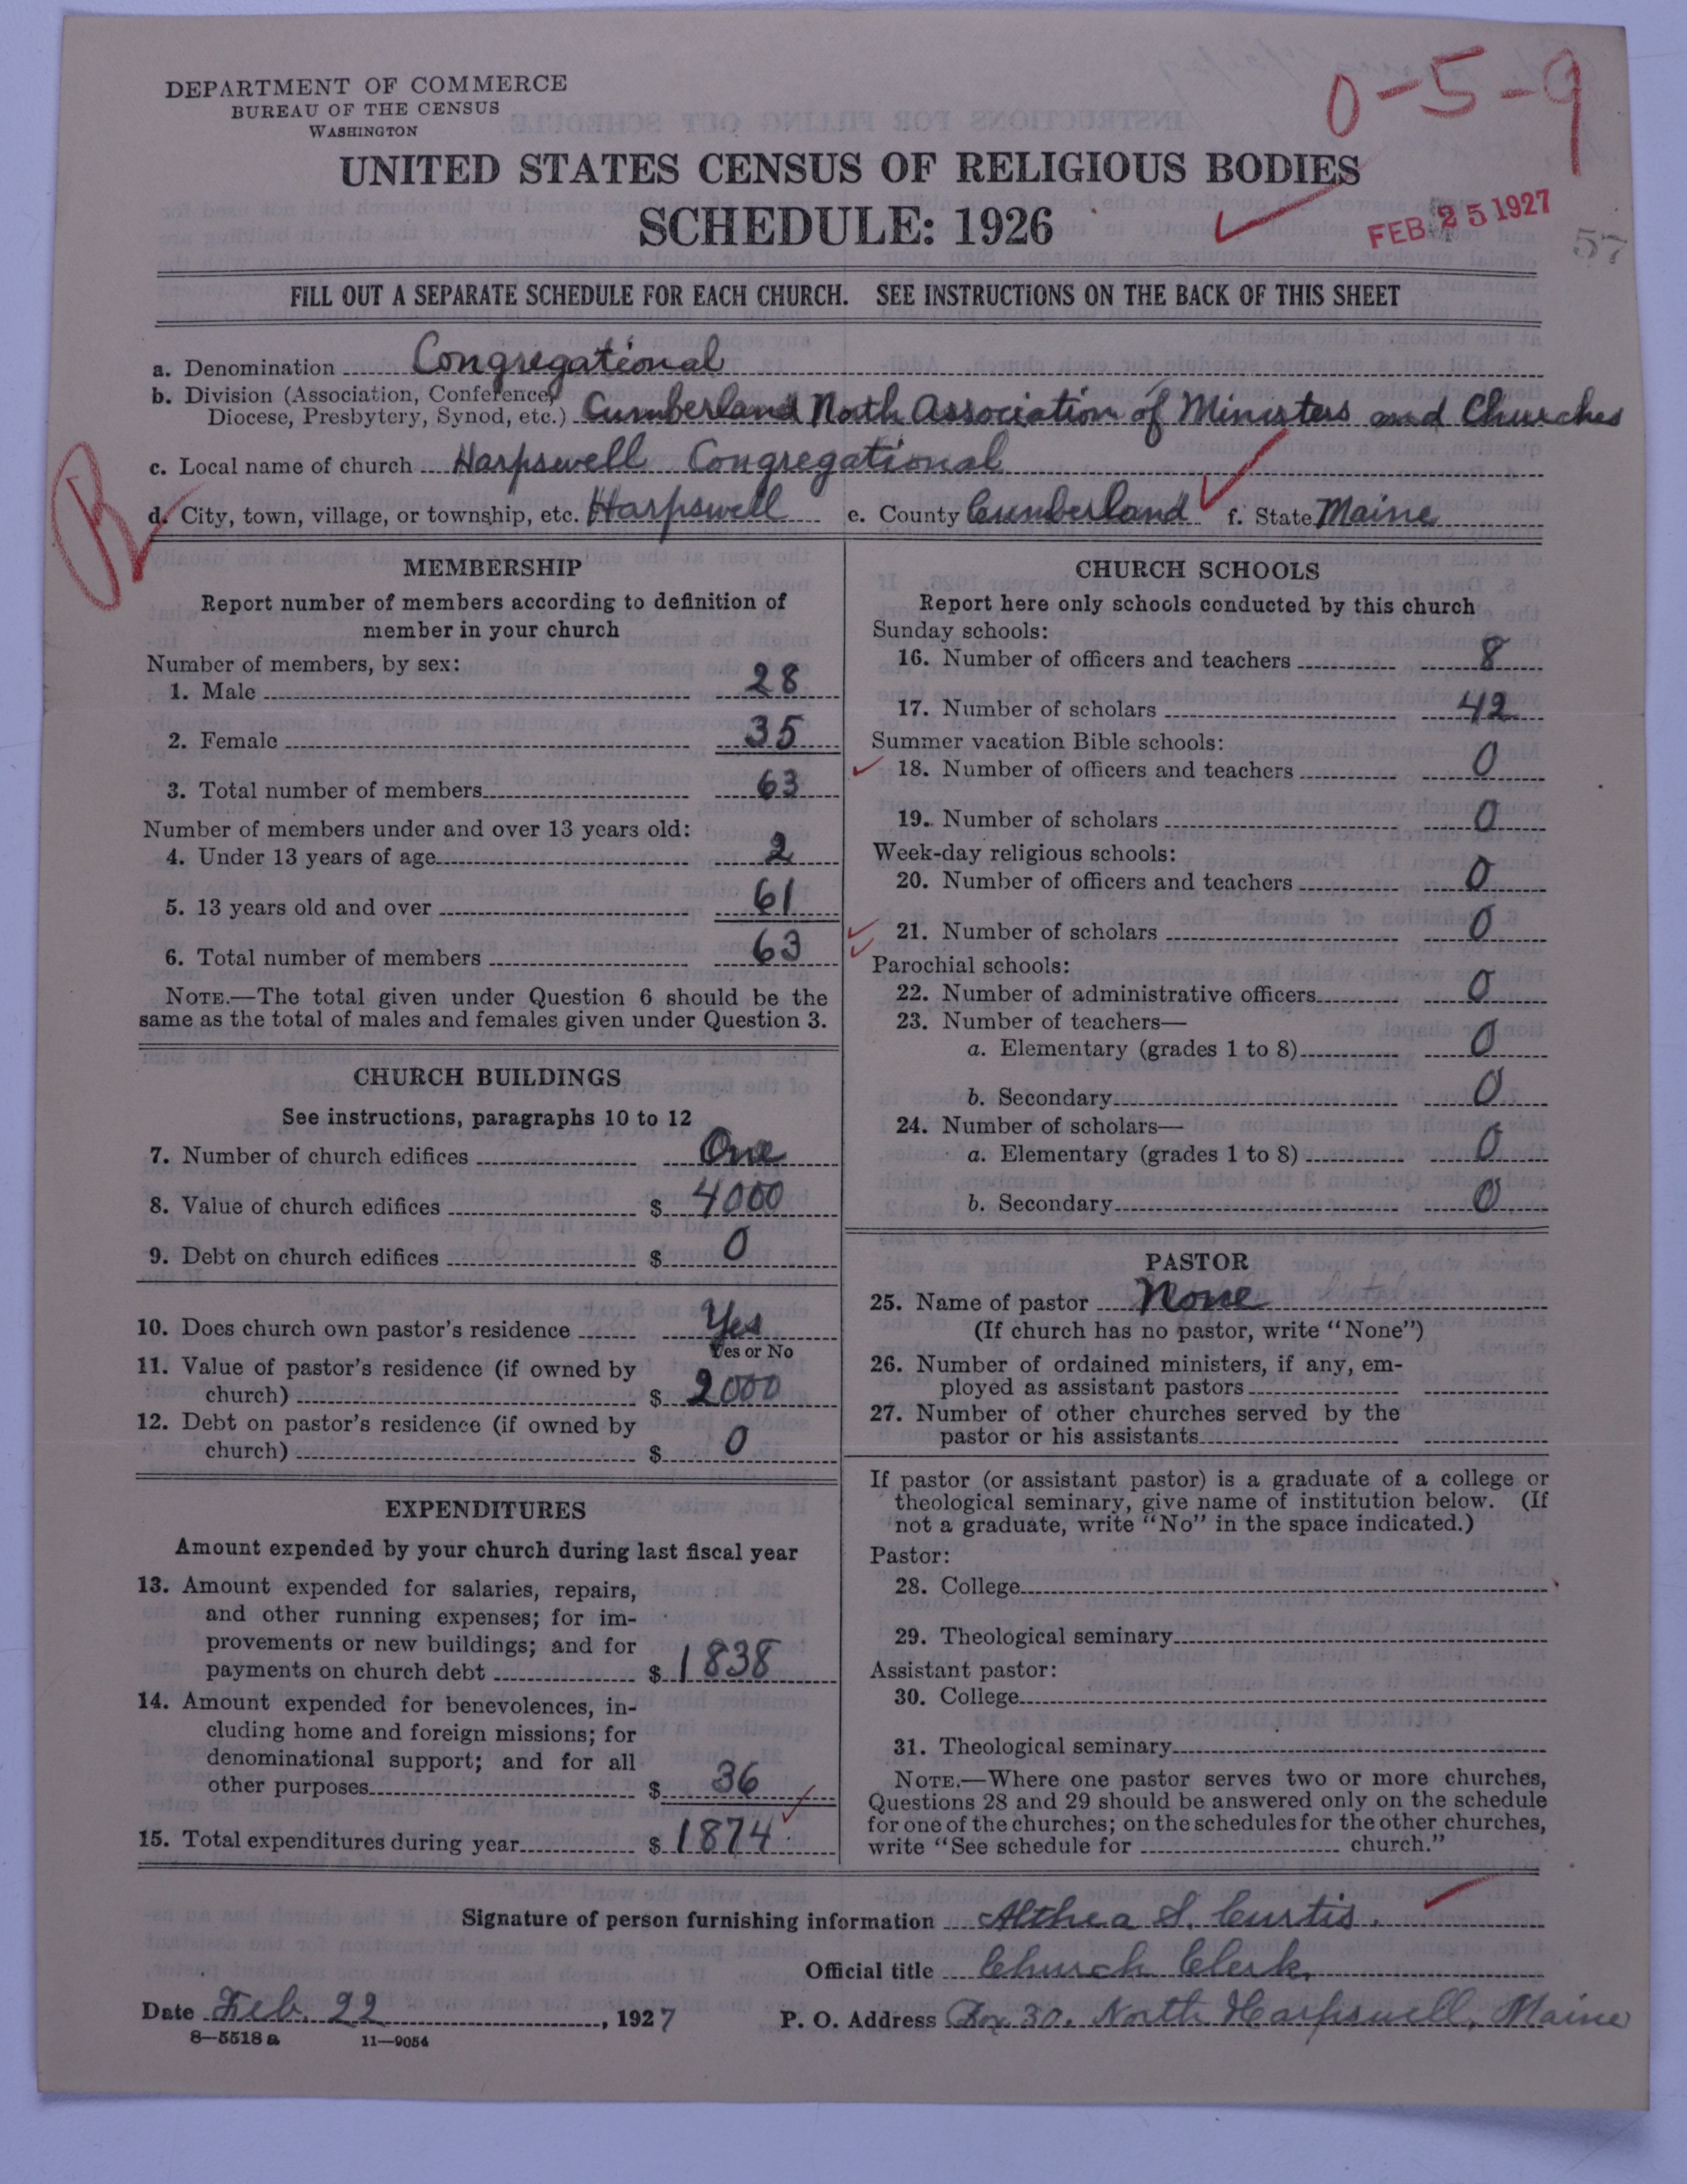 DEPARTMENT OF COMMERCE
BUREAU OF THE CENSUS
WASHINGTON
0-5-9
UNITED STATES CENSUS OF RELIGIOUS BODIES
SCHEDULE: 1926
FEB 25 1927
57
FILL OUT A SEPARATE SCHEDULE FOR EACH CHURCH. SEE INSTRUCTIONS ON THE BACK OF THIS SHEET
a. Denomination Congregational
b. Division (Association, Conference,
Diocese, Presbytery, Synod, etc.) Cumberland North Association of Ministers and Churches
c. Local name of church Harpswell Congregational
d. City, town, village, or township, etc. Harpswell e. County Cumberland f. State Maine
MEMBERSHIP
Report number of members according to definition of
member in your church
Number of members, by sex:
1. Male 28
2. Female 35
3. Total number of members 63
Number of members under and over 13 years old:
4. Under 13 years of age 2
5. 13 years old and over 61
6. Total number of members 63
NOTE.—The total given under Question 6 should be the
same as the total of males and females given under Question 3.
CHURCH BUILDINGS
See instructions, paragraphs 10 to 12
7. Number of church edifices One
8. Value of church edifices $ 4000
9. Debt on church edifices $ 0
10. Does church own pastor's residence Yes
Yes or No
11. Value of pastor's residence (if owned by
church) $ 2000
12. Debt on pastor's residence (if owned by
church) $ 0
EXPENDITURES
Amount expended by your church during last fiscal year
13. Amount expended for salaries, repairs,
and other running expenses; for im-
provements or new buildings; and for
payments on church debt $ 1838
14. Amount expended for benevolences, in-
cluding home and foreign missions; for
denominational support; and for all
other purposes $ 36
15. Total expenditures during year $ 1874
CHURCH SCHOOLS
Report here only schools conducted by this church
Sunday schools:
16. Number of officers and teachers 8
17. Number of scholars 42
Summer vacation Bible schools:
18. Number of officers and teachers 0
19. Number of scholars 0
Week-day religious schools:
20. Number of officers and teachers 0
21. Number of scholars 0
Parochial schools:
22. Number of administrative officers 0
23. Number of teachers—
a. Elementary (grades 1 to 8) 0
b. Secondary 0
24. Number of scholars—
a. Elementary (grades 1 to 8) 0
b. Secondary 0
PASTOR
25. Name of pastor None
(If church has no pastor, write "None")
26. Number of ordained ministers, if any, em-
ployed as assistant pastors
27. Number of other churches served by the
pastor or his assistants
If pastor (or assistant pastor) is a graduate of a college or
theological seminary, give name of institution below. (If
not a graduate, write "No" in the space indicated.)
Pastor:
28. College
29. Theological seminary
Assistant pastor:
30. College
31. Theological seminary
NOTE.—Where one pastor serves two or more churches,
Questions 28 and 29 should be answered only on the schedule
for one of the churches; on the schedules for the other churches,
write "See schedule for church."
Signature of person furnishing information Althea S. Curtis.
Official title Church Clerk,
Date Feb. 22, 1927 P. O. Address Box 30, North Harpswell, Maine
8—5518 a 11—9054